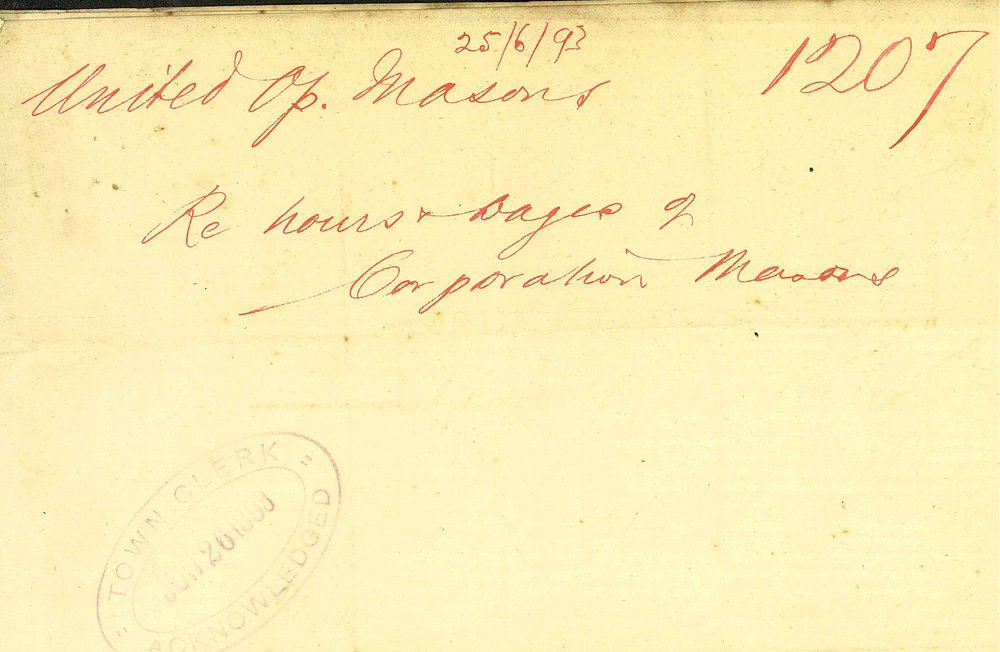 25/6/93
United Op. Masons 1207
Re hours & wages of
Corporation Masons
TOWN CLERK
JUN 26 1893
ACKNOWLEDGED